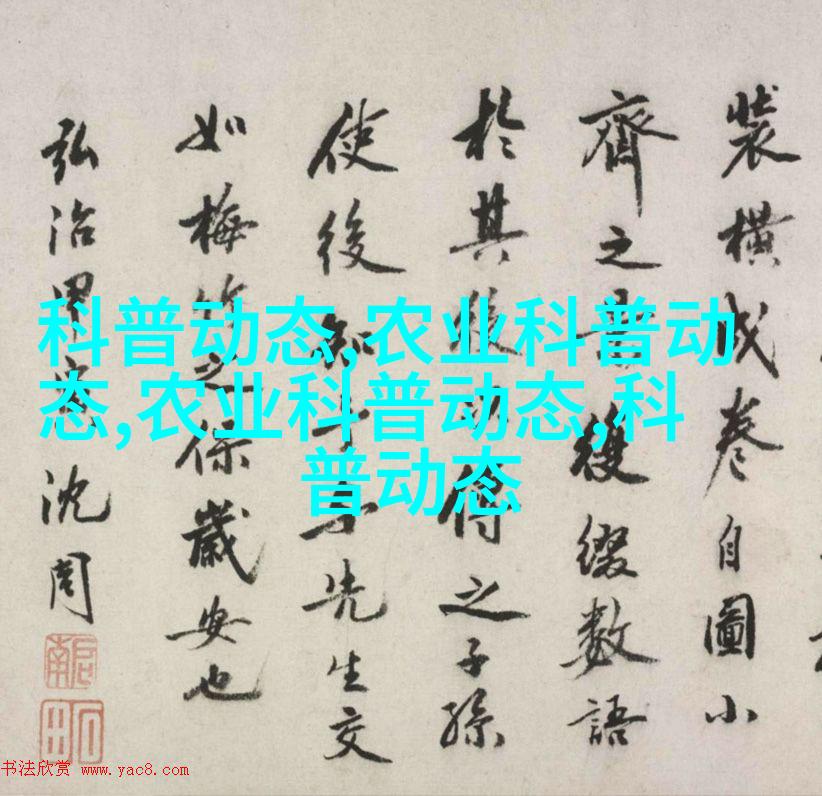 裝橫成卷自圖小
齊之後綴數語
於其傳之子孫
使後知予先生交
如梅竹之保歲安也
弘治甲沈周
科普动态,农业科普动
态,农业科普动态,科
普动态
书法欣赏 www.yac8.com